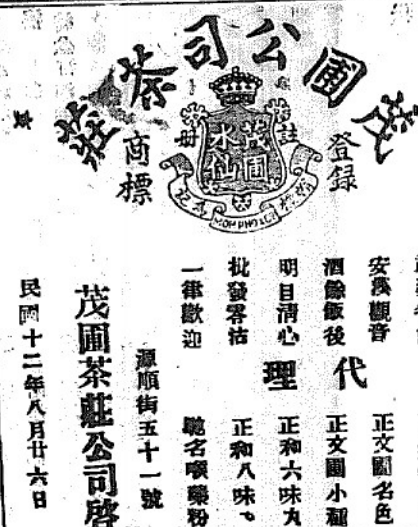 茂圃公司茶莊
登錄
商標
註册
茂圃
水仙
安溪觀音
酒餘飯後
明目清心
批發零沽
一律歡迎
代理
正文圃名色
正文圃小種
正和六味丸
正和八味
源順街五十一號
茂圃茶莊公司啓
民國十二年八月廿六日